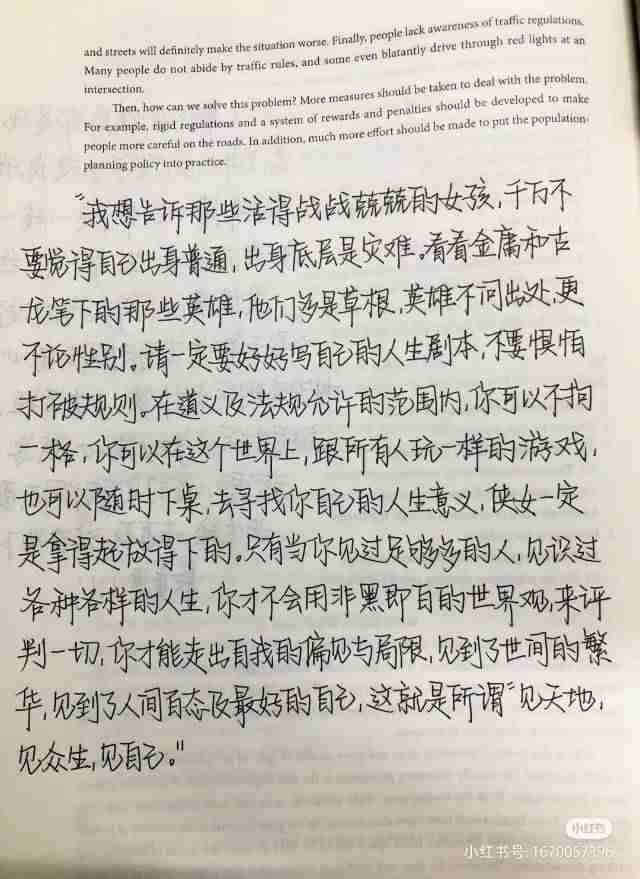 and streets will definitely make the situation worse. Finally, people lack awareness of traffic regulations.
Many people do not abide by traffic rules, and some even blatantly drive through red lights at an
intersection.
Then, how can we solve this problem? More measures should be taken to deal with the problem.
For example, rigid regulations and a system of rewards and penalties should be developed to make
people more careful on the roads. In addition, much more effort should be made to put the population-
planning policy into practice.
"我想告诉那些活得战战兢兢的女孩,千万不
要觉得自己出身普通,出身底层是灾难。看看金庸和古
龙笔下的那些英雄,他们多是草根,英雄不问出处,更
不论性别。请一定要好好写自己的人生剧本,不要惧怕
打破规则。在道义及法规允许的范围内,你可以不拘
一格,你可以在这个世界上,跟所有人玩一样的游戏,
也可以随时下桌,去寻找你自己的人生意义,侠女一定
是拿得起放得下的。只有当你见过足够多的人,见识过
各种各样的人生,你才不会用非黑即白的世界观,来评
判一切,你才能走出自我的偏见与局限,见到了世间的繁
华,见到了人间百态及最好的自己,这就是所谓"见天地,
见众生,见自己。"
小红书
小红书号: 1670057396